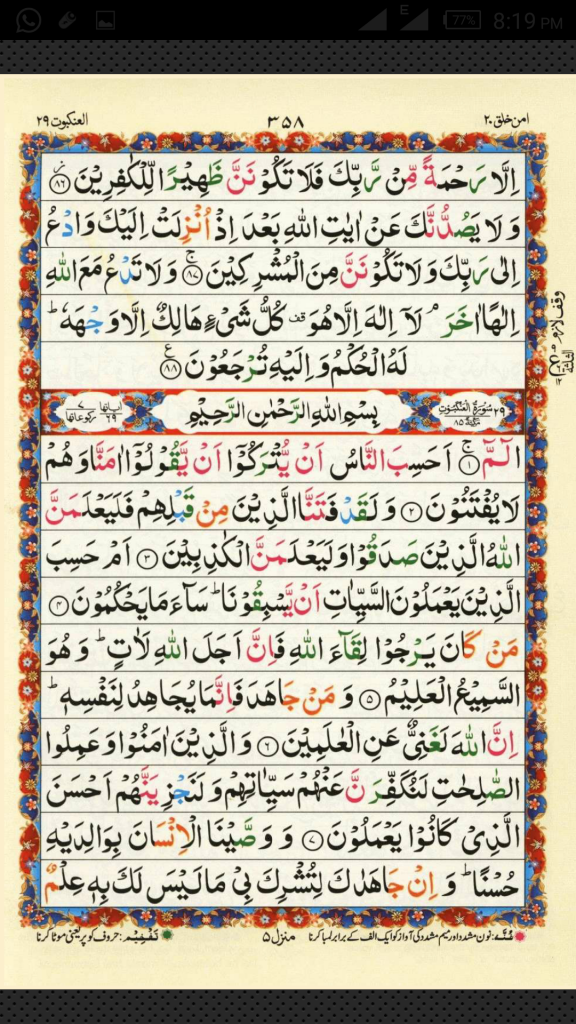 E 77% 8:19 PM
امن خلق ۲۰ ۳۵۸ العنكبوت ۲۹
اِلَّا رَحْمَةً مِّنْ رَّبِّكَ فَلَا تَكُوْنَنَّ ظَهِيْرًا لِّلْكٰفِرِيْنَ ۸۶
وَلَا يَصُدُّنَّكَ عَنْ اٰيٰتِ اللّٰهِ بَعْدَ اِذْ اُنْزِلَتْ اِلَيْكَ وَادْعُ
اِلٰى رَبِّكَ وَلَا تَكُوْنَنَّ مِنَ الْمُشْرِكِيْنَ ۸۷ وَلَا تَدْعُ مَعَ اللّٰهِ
اِلٰهًا اٰخَرَ ۘ لَاۤ اِلٰهَ اِلَّا هُوَ قف كُلُّ شَىْءٍ هَالِكٌ اِلَّا وَجْهَهٗ ؕ
لَهُ الْحُكْمُ وَاِلَيْهِ تُرْجَعُوْنَ ۸۸
وقف لازم
۲۹ سُوْرَةُ الْعَنْكَبُوْتِ مَكِّيَّةٌ ۸۵ بِسْمِ اللّٰهِ الرَّحْمٰنِ الرَّحِيْمِ اٰيٰتها ۶۹ رکوعاتها ۷
الٓمّٓ ۱ اَحَسِبَ النَّاسُ اَنْ يُّتْرَكُوْۤا اَنْ يَّقُوْلُوْۤا اٰمَنَّا وَهُمْ
لَا يُفْتَنُوْنَ ۲ وَلَقَدْ فَتَنَّا الَّذِيْنَ مِنْ قَبْلِهِمْ فَلَيَعْلَمَنَّ
اللّٰهُ الَّذِيْنَ صَدَقُوْا وَلَيَعْلَمَنَّ الْكٰذِبِيْنَ ۳ اَمْ حَسِبَ
الَّذِيْنَ يَعْمَلُوْنَ السَّيِّاٰتِ اَنْ يَّسْبِقُوْنَا ؕ سَآءَ مَا يَحْكُمُوْنَ ۴
مَنْ كَانَ يَرْجُوْا لِقَآءَ اللّٰهِ فَاِنَّ اَجَلَ اللّٰهِ لَاٰتٍ ؕ وَهُوَ
السَّمِيْعُ الْعَلِيْمُ ۵ وَمَنْ جَاهَدَ فَاِنَّمَا يُجَاهِدُ لِنَفْسِهٖ ؕ
اِنَّ اللّٰهَ لَغَنِىٌّ عَنِ الْعٰلَمِيْنَ ۶ وَالَّذِيْنَ اٰمَنُوْا وَعَمِلُوا
الصّٰلِحٰتِ لَنُكَفِّرَنَّ عَنْهُمْ سَيِّاٰتِهِمْ وَلَنَجْزِيَنَّهُمْ اَحْسَنَ
الَّذِىْ كَانُوْا يَعْمَلُوْنَ ۷ وَوَصَّيْنَا الْاِنْسَانَ بِوَالِدَيْهِ
حُسْنًا ؕ وَاِنْ جَاهَدٰكَ لِتُشْرِكَ بِىْ مَا لَيْسَ لَكَ بِهٖ عِلْمٌ
غُنّه: نون مشدد اور میم مشدد کی آواز کو ایک الف کے برابر لمبا کرنا منزل ۵ تَفْخِیْم: حروف کو پُر یعنی موٹا کرنا